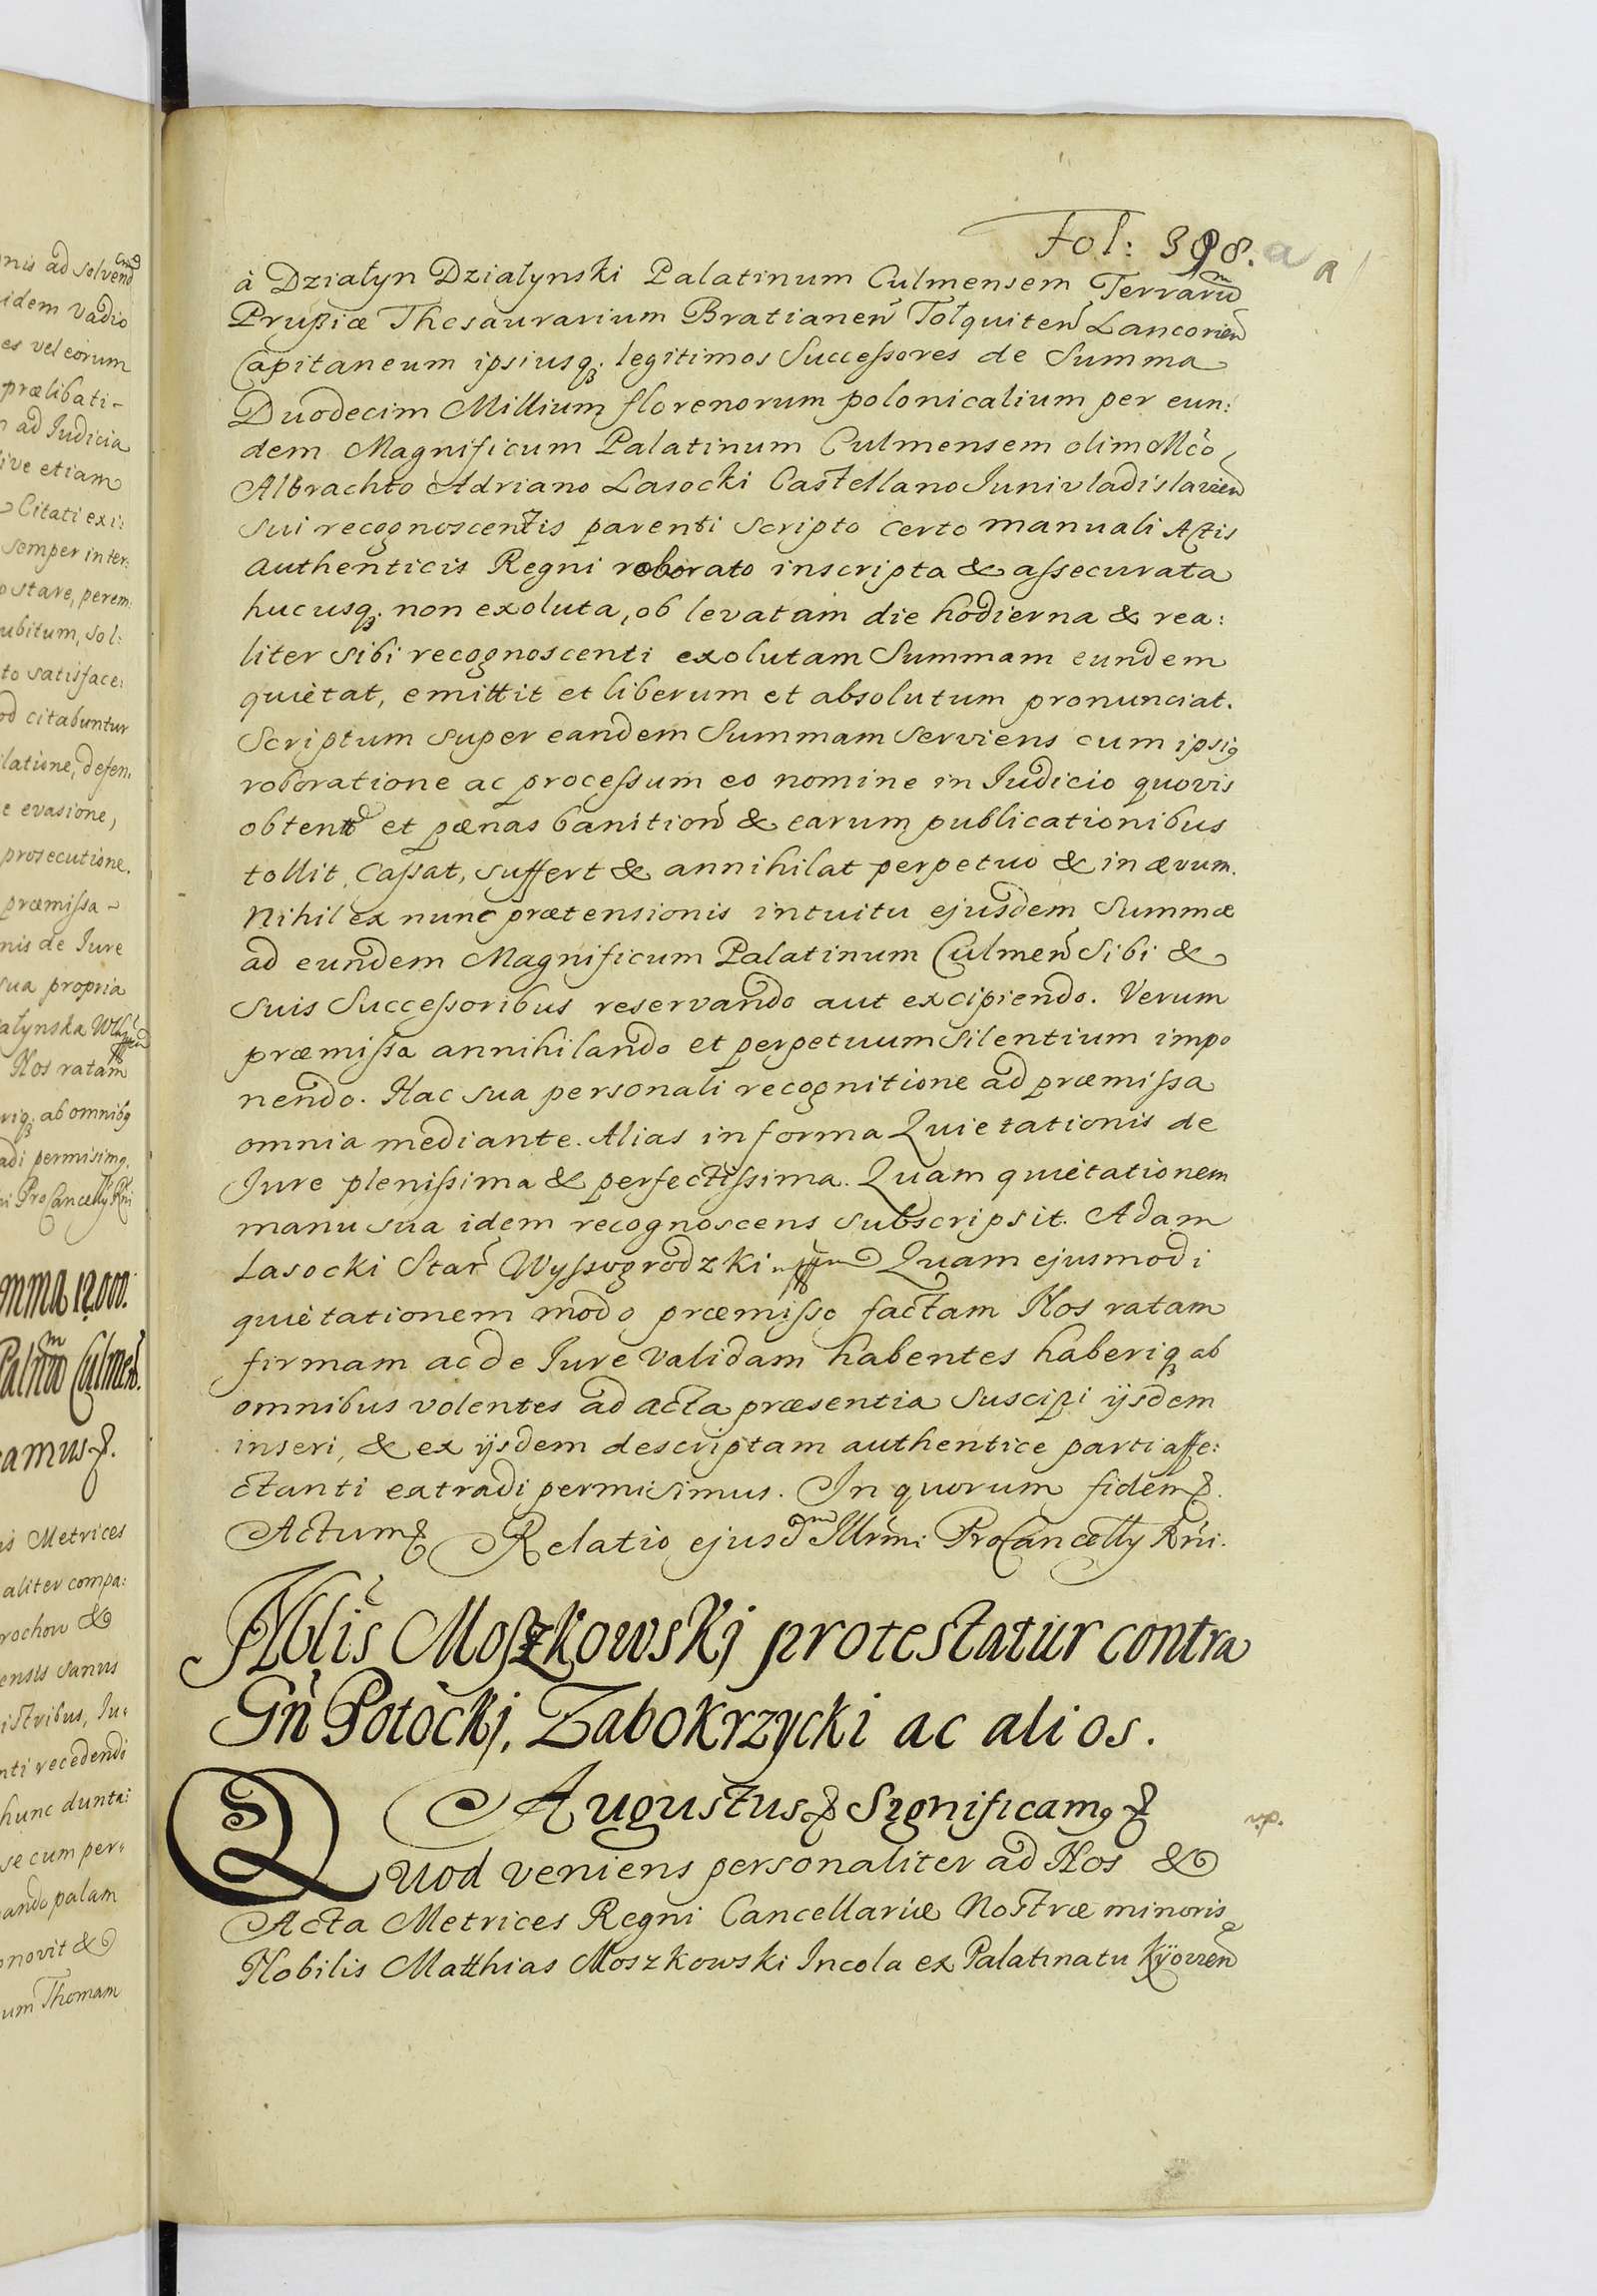 nis ad solvend
idem Vadio
es vel eorum
prælibati-
ad Judicia
ive etiam
Citati exi:
semper inter:
stare, perem:
ubitum, sol:
to satisface:
od citabuntur
latione, defen:
e evasione,
prosecutione.
præmissa-
nis de Jure
sua propria
ałynska
Nos ratam
riq3 ab omnibq
adi permisimq.
ni ProCancellÿ Rni
mma 12000.
Culmen.
camus
is Metrices
aliter compa:
rochow &
ensis sanus
istribus, Ju:
nti recedendi
hunc dunta:
se cum per:
ando palam
onovit &
um Thomam
Fol: 398. a a
à Działyn Działynski Palatinum Culmensem Terraru͞m
Prußiæ Thesaurarium Bratianen̄ Tołquiten̄ Lancorien̄
Capitaneum ipsiusq3 legitimos Successores de Summa
Duodecim Millium florenorum polonicalium per eun:
dem Magnificum Palatinum Culmensem olim Mco
Albrachto Adriano Lasocki Castellano Junivladislavien̄
sui recognoscentis parenti scripto certo manuali Actis
authenticis Regni roborato inscripta & assecurata
hucusq3 non exoluta, ob levatam die hodierna & rea:
liter sibi recognoscenti exolutam Summam eundem
quiètat, emittit et liberum et absolutum pronunciat.
Scriptum super eandem Summam serviens cum ipsiq
roboratione ac processum eo nomine in Judicio quovis
obtent et pœnas banition̄ & earum publicationibus
tollit, Cassat, suffert & annihilat perpetuo & in ævum.
Nihil ex nunc prætensionis intuitu ejusdem Summæ
ad eundem Magnificum Palatinum Culmen̄ Sibi &
suis Successoribus reservando aut excipiendo. Verum
præmissa annihilando et perpetuum silentium impo
nendo. Hac sua personali recognitione ad præmissa
omnia mediante. Alias in forma Quietationis de
Jure plenissima & perfectissima. Quam quiètationem
manu sua idem recognoscens subscripsit. Adam
Lasocki Star̄ Wyssogrodzki Quam ejusmodi
quiètationem modo præmisso factam Nos ratam
firmam ac de Jure validam habentes haberiq3 ab
omnibus volentes ad acta præsentia suscipi ijsdem
inseri, & ex ijsdem descriptam authentice parti affe:
ctanti extradi permisimus. In quorum fidem &.
Actum & Relatio ejusdm Illrmi ProCancellÿ Rn̄i.
Nblis̄ Moszkowskj protestatur contra
Gn̄ Potockj, Zabokrzycki ac alios.
Augustus & Significamq &
Quod veniens personaliter ad Nos &
Acta Metrices Regni Cancellariæ Nostræ minoris
Nobilis Matthias Moszkowski Incola ex Palatinatu Kÿovien̄
v.p.